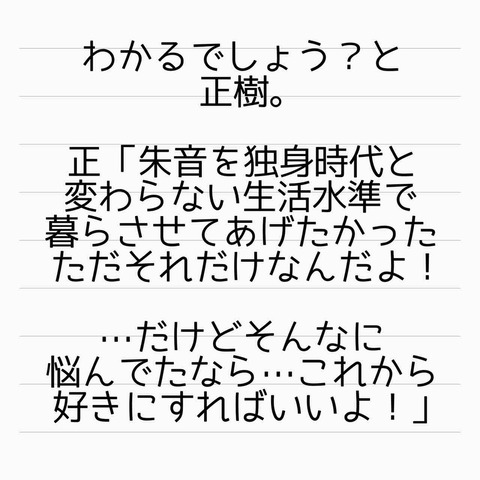 わかるでしょう？と
正樹。
正「朱音を独身時代と
変わらない生活水準で
暮らさせてあげたかった
ただそれだけなんだよ！
…だけどそんなに
悩んでたなら…これから
好きにすればいいよ！」